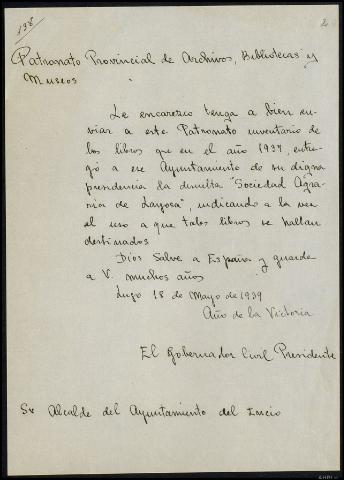 138
2
Patronato Provincial de Archivos, Bibliotecas y
Museos
Le encarezco tenga a bien en-
viar a este Patronato inventario de
los libros que en el año 1937, entre-
gó a ese Ayuntamiento de su digna
presidencia la disuelta "Sociedad Agra-
ria de Layosa", indicando a la vez
el uso a que tales libros se hallan
destinados
Dios Salve a España y guarde
a V. muchos años
Lugo 18 de Mayo de 1939
Año de la Victoria
El Gobernador Civil Presidente
Sr Alcalde del Ayuntamiento del Incio